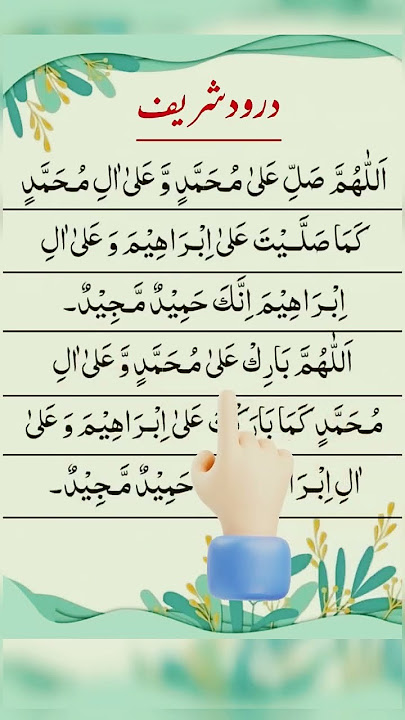 درود شریف
اَللّٰهُمَّ صَلِّ عَلٰی مُحَمَّدٍ وَّ عَلٰٓی اٰلِ مُحَمَّدٍ
کَمَا صَلَّیْتَ عَلٰٓی اِبْرَاهِیْمَ وَ عَلٰٓی اٰلِ
اِبْرَاهِیْمَ اِنَّكَ حَمِیْدٌ مَّجِیْدٌ۔
اَللّٰهُمَّ بَارِكْ عَلٰی مُحَمَّدٍ وَّ عَلٰٓی اٰلِ
مُحَمَّدٍ کَمَا عَلٰٓی اِبْرَاهِیْمَ وَ عَلٰٓی
اٰلِ حَمِیْدٌ مَّجِیْدٌ۔